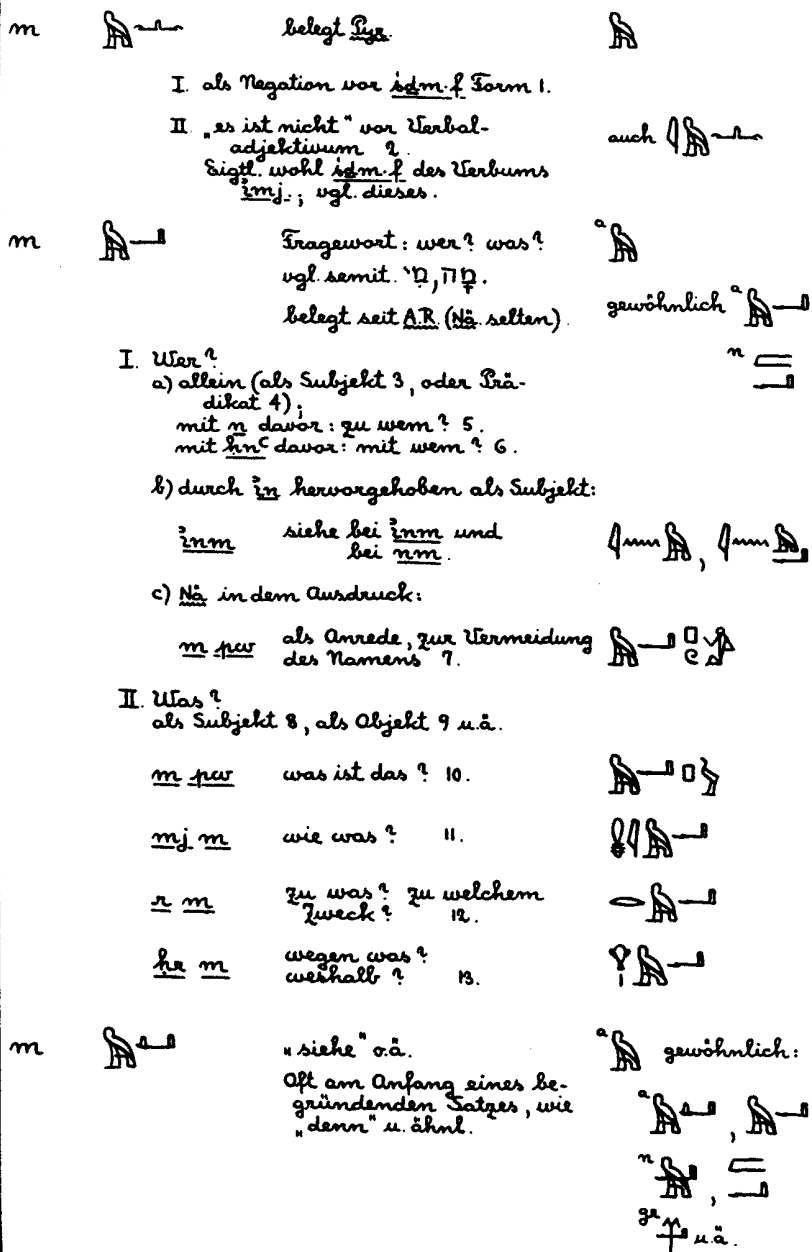 m 𓅓𓂜 belegt Pyr. 𓅓
I. als Negation vor śḏm·f Form 1.
II. „es ist nicht“ vor Verbal-
adjektivum 2. auch 𓇋𓅓𓂜
Eigtl. wohl śḏm·f des Verbums
ı͗mj.; vgl. dieses.
m 𓅓𓂝 Fragewort: wer? was? a 𓅓
vgl. semit. מִי, מָה.
belegt seit A.R. (Nä. selten). gewöhnlich a 𓅓𓂝
I. Wer? n 𓐝𓂝
a) allein (als Subjekt 3, oder Prä-
dikat 4);
mit n davor: zu wem? 5.
mit ḥnꜥ davor: mit wem? 6.
b) durch ı͗n hervorgehoben als Subjekt:
ı͗nm siehe bei ı͗nm und 𓇋𓈖𓅓, 𓇋𓈖𓅓𓂝
bei nm.
c) Nä in dem Ausdruck:
m pw als Anrede, zur Vermeidung 𓅓𓂝𓊪𓏲𓀁
des Namens 7.
II. Was?
als Subjekt 8, als Objekt 9 u.ä.
m pw was ist das? 10. 𓅓𓂝𓊪𓅱
mj m wie was? 11. 𓏇𓇋𓅓𓂝
r m zu was? zu welchem 𓂋𓅓𓂝
Zweck? 12.
ḥr m wegen was? 𓁷𓏤𓅓𓂝
weshalb? 13.
m 𓅓𓂞 „siehe“ o.ä. a 𓅓 gewöhnlich:
Oft am Anfang eines be-
gründenden Satzes, wie a 𓅓𓂞, 𓅓𓂝
„denn“ u. ähnl.
n 𓅔, 𓐝𓂝
gr u.ä.